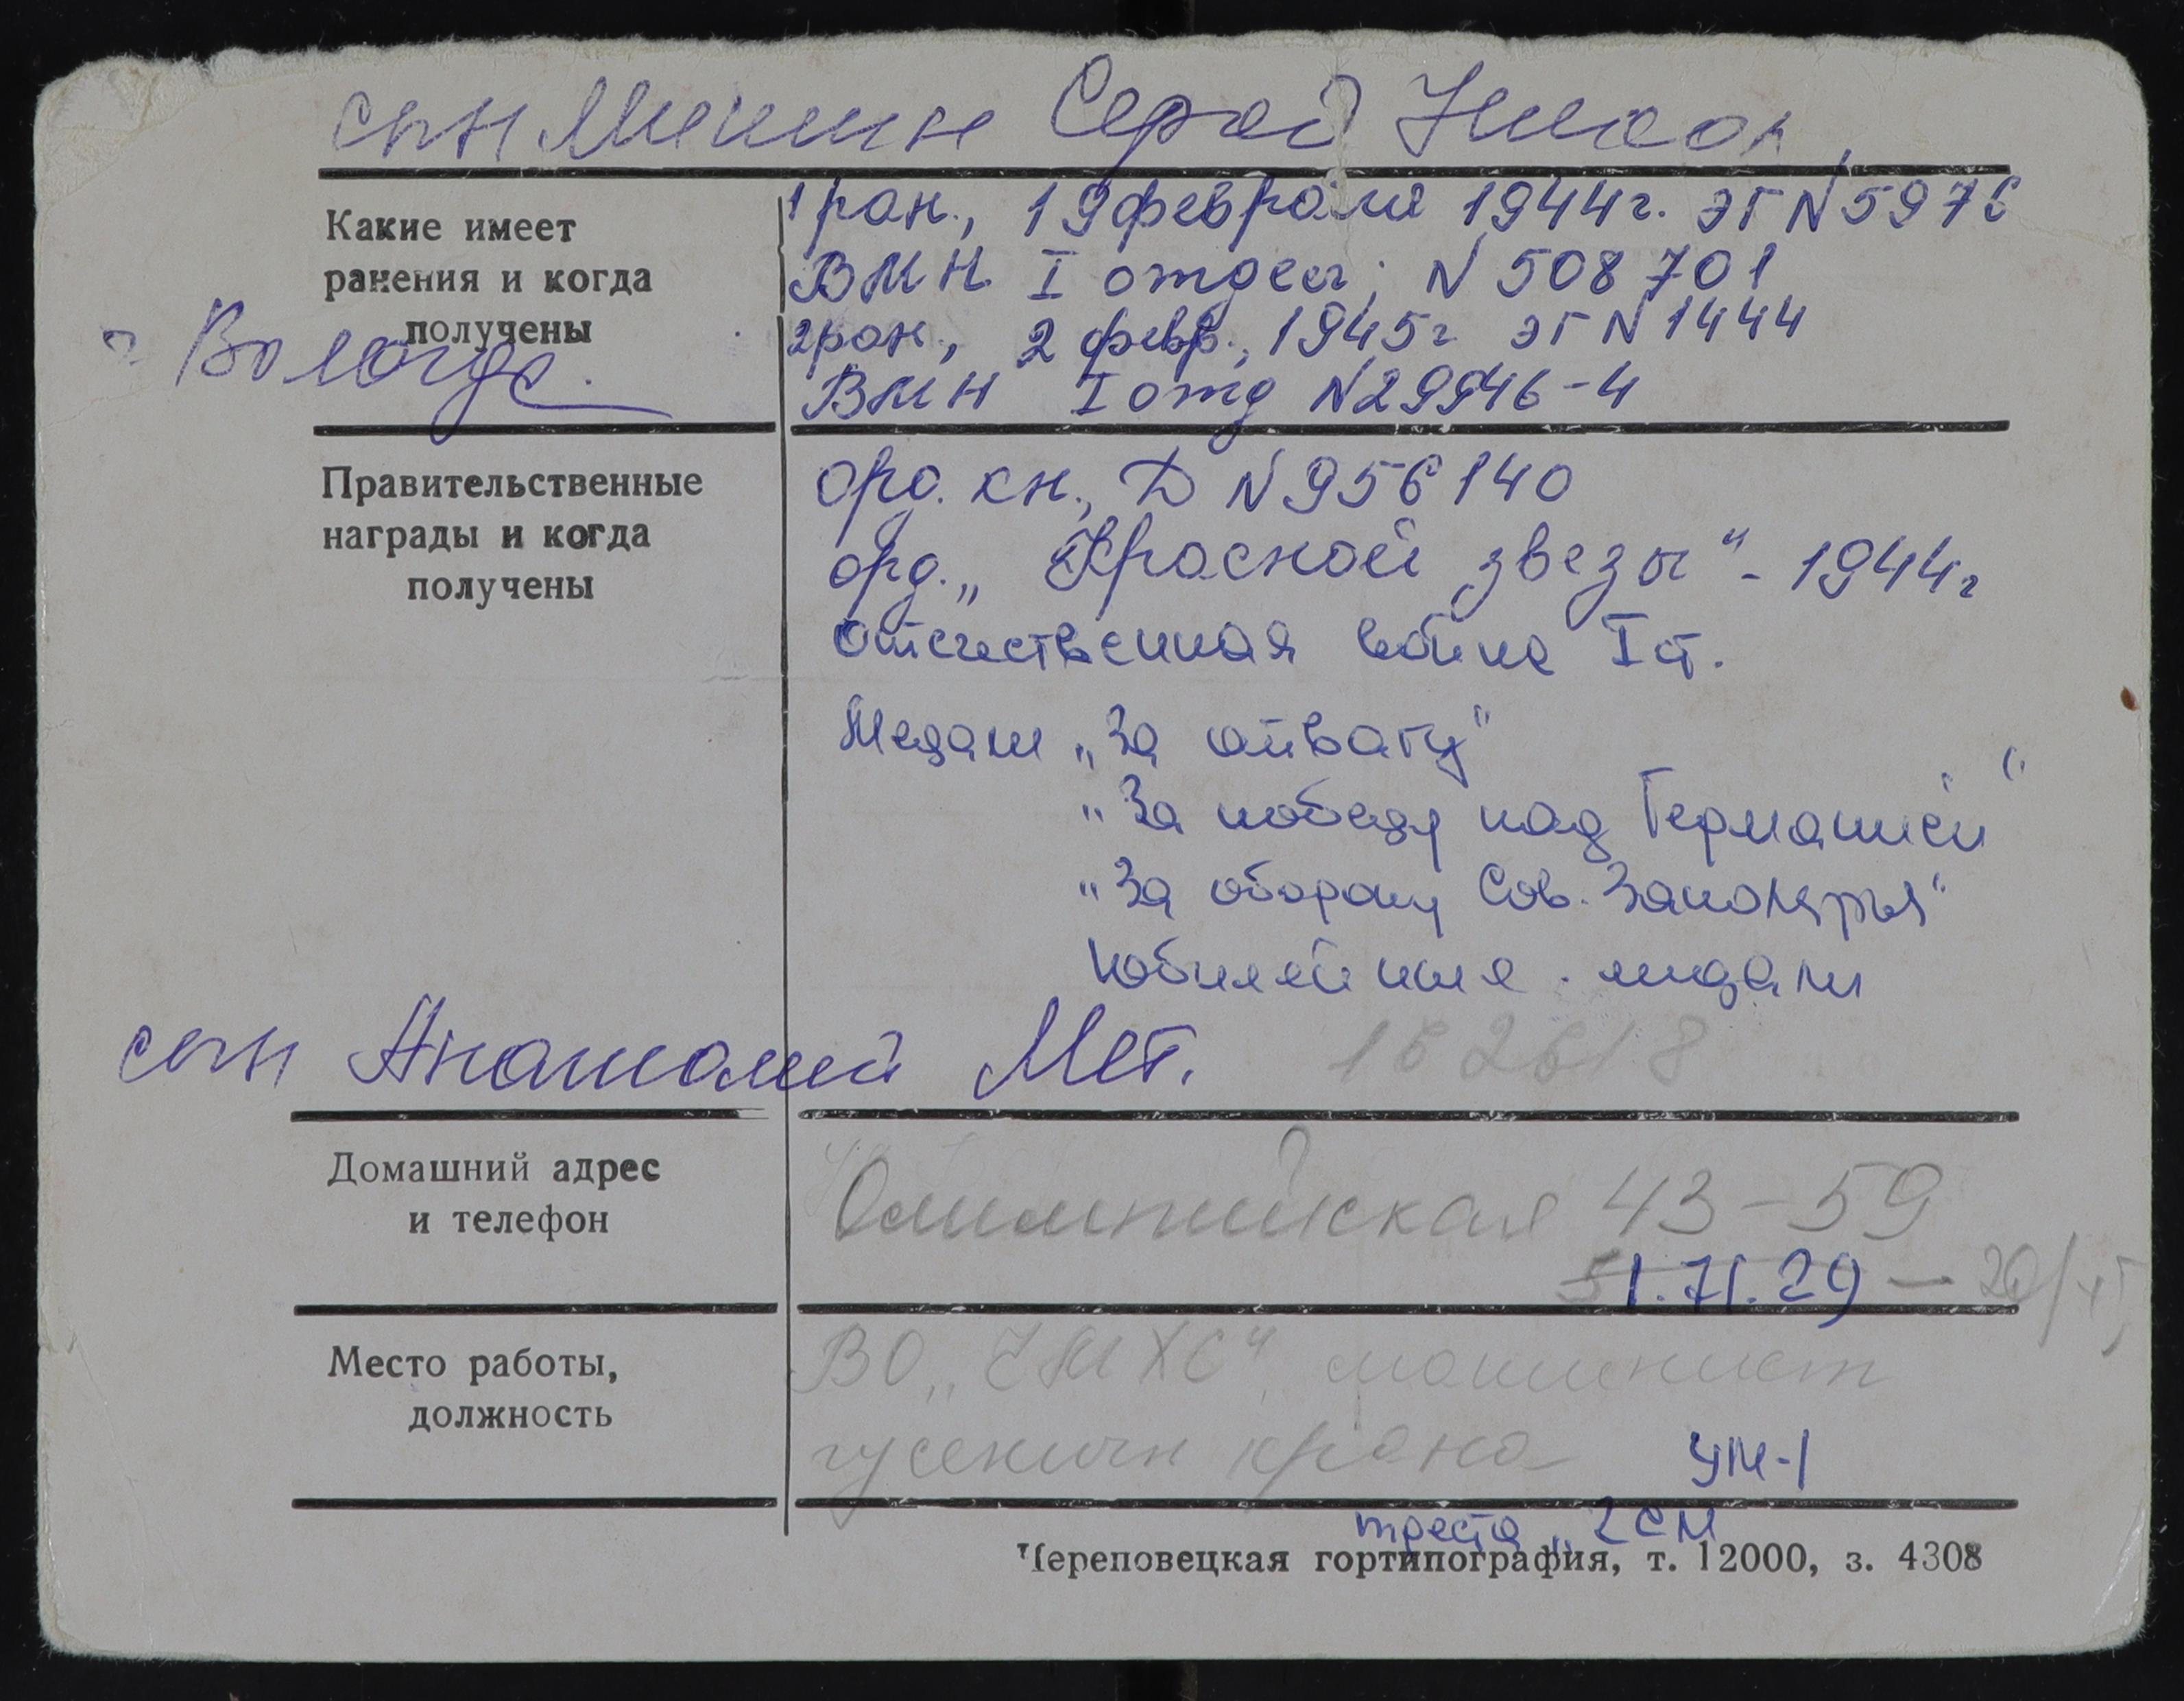 сын Сергей Никол,
Какие имеет
ранения и когда
получены
г Вологде.
1 ран., 19 февраля 1944г. ЭГ N 5976
ВМН. I отдел; N 508701
2 ран., 2 февр., 1945г ЭГ N 1444
ВМН I отд N 29946-4
Правительственные
награды и когда
получены
орд. кн., Д N 956140
орд. „Красной звезы" - 1944г
Отечественная война I ст.
Медали „За отвагу"
„За победу над Германией"
„За оборону Сов. Заполярья"
Юбилейные медали
сын Анатолий Мет.
Домашний адрес
и телефон
Олимпийская 43-59
51.71.29 —
Место работы,
должность
ВО „ЧМХС", машинист
гусеничн крана УМ-1
треста
Череповецкая гортипография, т. 12000, з. 4308